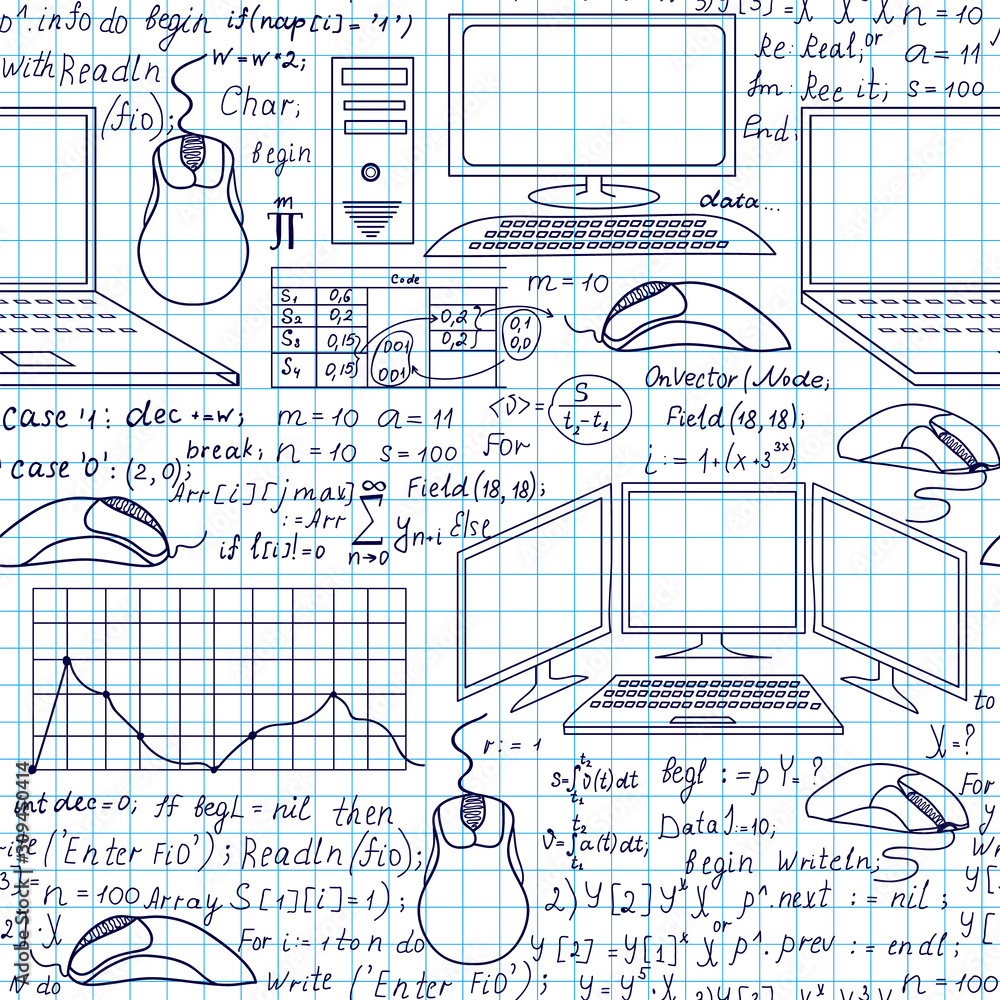 p^.info do begin if(nap[i]='1')
with Readln
(fio);
w=w*2;
Char;
begin
m
П
X X X n = 10
Re: Real; or a = 11
Im: Ree it; s = 100
End;
data...
Code
S1 0,6
S2 0,2
S3 0,15
S4 0,15
001
001
0,2
0,2
0,1
0,0
m = 10
OnVector(Node;
Field(18,18);
i := 1+(x+3^3x);
case '1': dec +=w; m=10 a=11
break; n=10 s=100
case '0': (2,0);
<v>= S
t2-t1
For
Arr[i][jmax]
:=Arr
if l[i]!=0
∞
∑
n→0
y n+i Else
Field(18,18);
to
r:=1
S=∫v(t)dt
t2
t1
v=∫a(t)dt;
t2
t1
begl :=p Y=?
X=?
For
y
DataJ:=10;
begin Writeln;
int dec=0; If begL = nil then
('Enter FiO'); Readln(fio);
n=100 Array S[1][i]=1);
For i:=1 to n do
Write ('Enter FiO');
N do
2) y[2] y^x X p^.next := nil;
or
y[2]=y[1]^x X p^.prev := endl;
y=y^5.X
n=100
Adobe Stock | #309450414